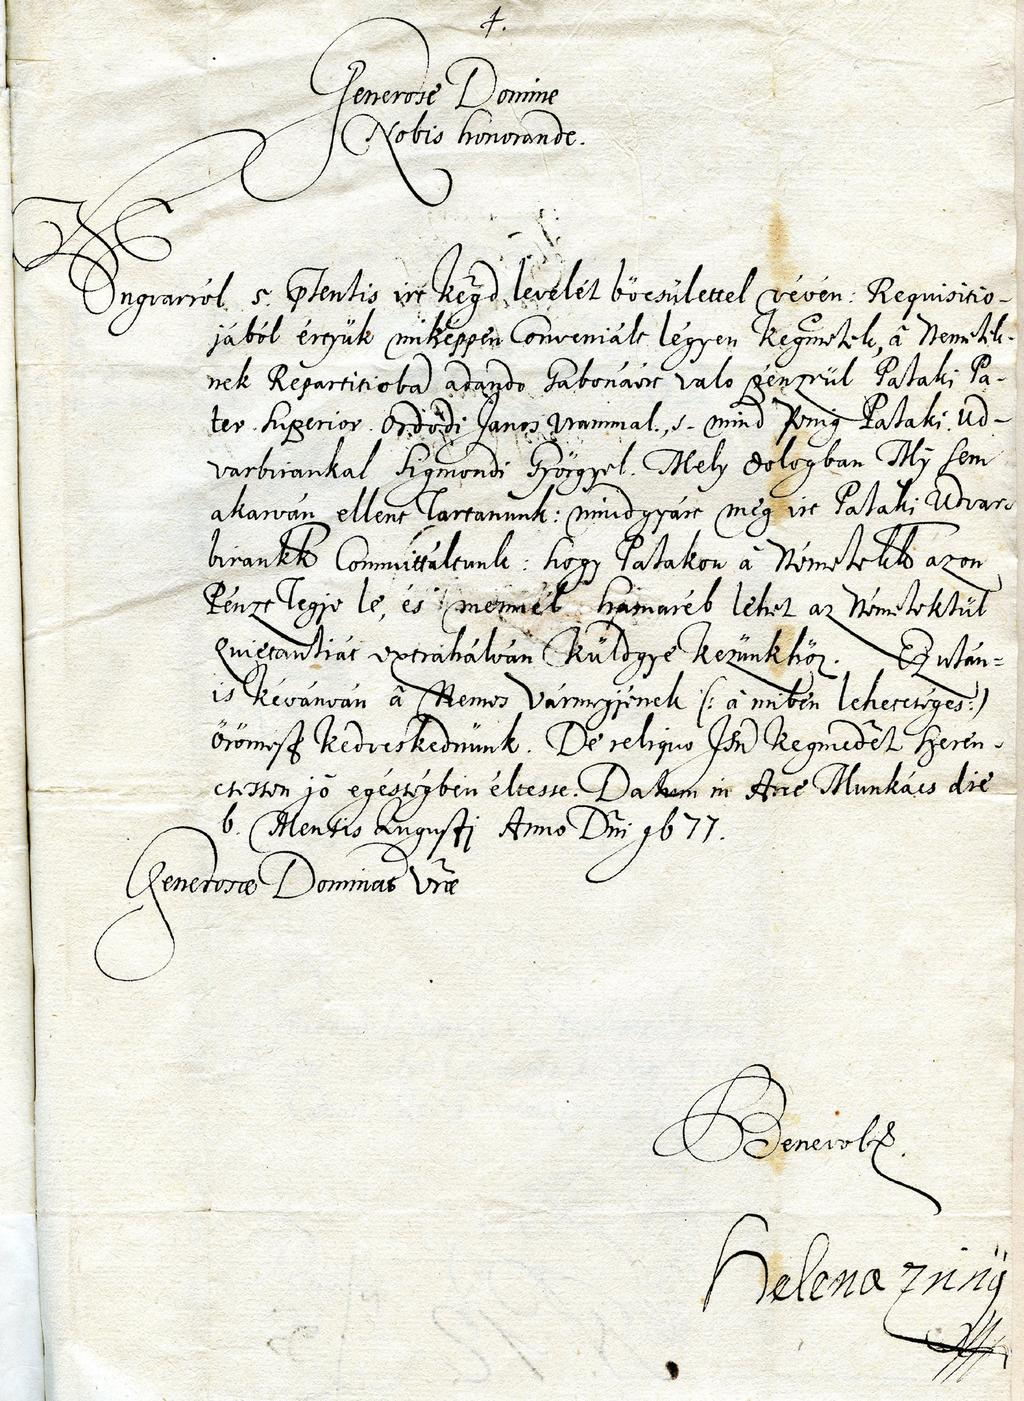 Generose Domine
Nobis honorande.
Ungvarról 5. pntentis irt kegd levelét böcsülettel vévén: Requisitio-
jából értyük miképpen Conveniált légyen kegmetek, â Nemetek-
nek Repartitioba adando Gabonáért valo pénzrül Pataki Pa-
ter Superior Ordódi Janos Urammal, s- mind penig Pataki Ud-
varbirankal Sigmondi Györgyel. Mely dologban My sem
akarván ellent Tartanunk: mindgyárt meg irt Pataki Udvar
birankk Committáltunk: hogy Patakon â Németekk azon
Pénzt Tegje le, és mennél hamaréb lehet az Németektül
Quietantiát extrahálván küldgye kezünkhöz. Ez után-
is kévánván â Nemes Vármegjének (: â miben lehetséges:)
örömest kedveskednünk. De reliquo Istn kegmedet szeren-
cséssen jó egéségben éltesse. Datum in Arce Munkács die
6. Mensis Augusti Anno Dni 1677.
Generosae Dominaos Vrae
Benevola.
Helena Zriny